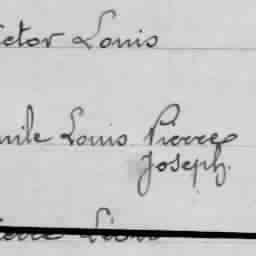 ictor Louis
mile Louis Pierre
Joseph.